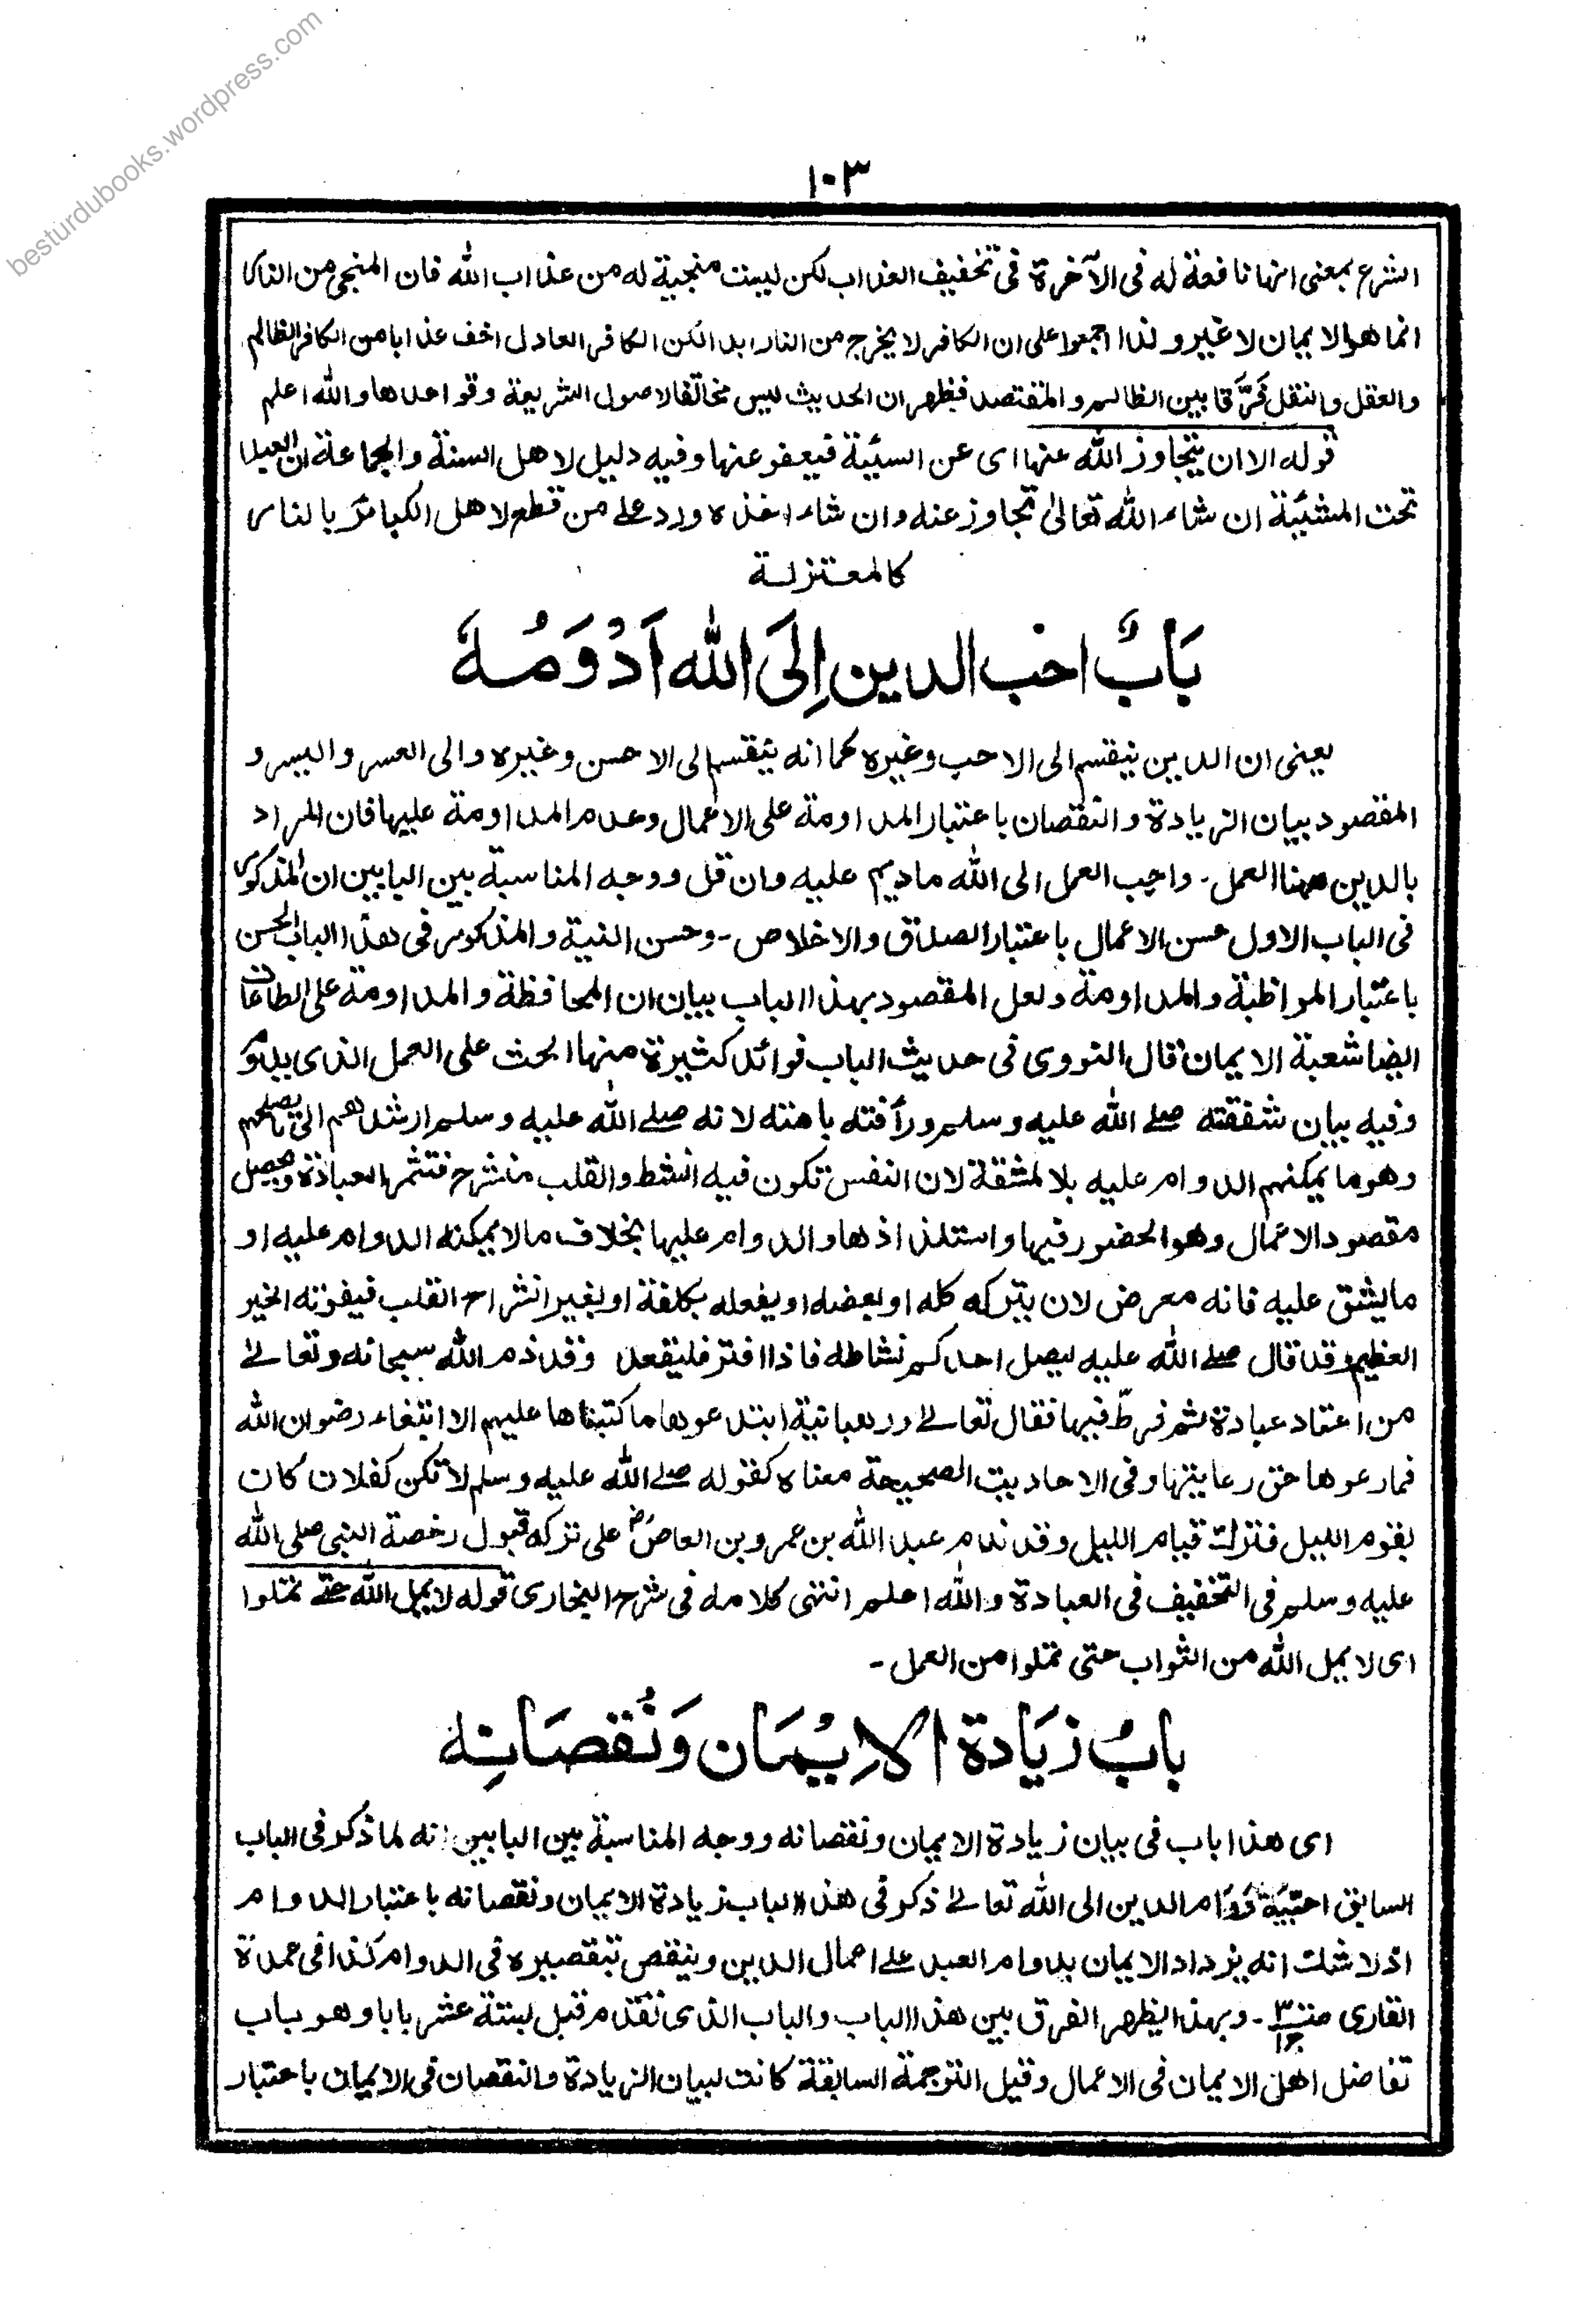 besturdubooks.wordpress.com
١٠٣
الشرع بمعنى انها نافعة له فى الآخرة فى تخفيف العذاب لكن ليست منجية له من عذاب الله فان المنجى من النار
انما هو الايمان لا غير ولذا اجمعوا على ان الكافر لا يخرج من النار ابدا لكن الكافر العادل اخف عذابا من الكافر الظالم
والعقل والنقل فَرَّقا بين الظالم والمقتصد فظهر ان الحديث ليس مخالفا لاصول الشريعة وقواعدها والله اعلم
قوله الا ان يتجاوز الله عنها اى عن السيئة فيعفو عنها وفيه دليل لاهل السنة والجماعة ان العبد
تحت المشيئة ان شاء الله تعالىٰ تجاوز عنه وان شاء اخذه ورد علے من قطع لاهل الكبائر بالنار
كالمعتزلة
بَابٌ احب الدين اِلَى الله اَدْوَمُهٗ
يعنى ان الدين ينقسم الى الاحب وغيره كما انه ينقسم الى الاحسن وغيره والى العسر واليسر و
المقصود بيان الزيادة والنقصان باعتبار المداومة على الاعمال وعدم المداومة عليها فان المراد
بالدين ههنا العمل ـ واحب العمل الى الله ماديم عليه وان قل ووجه المناسبة بين البابين ان المذكور
فى الباب الاول حسن الاعمال باعتبار الصدق والاخلاص ـ وحسن النية والمذكور فى هذا الباب الحسن
باعتبار المواظبة والمداومة ولعل المقصود بهذا الباب بيان ان المحافظة والمداومة على الطاعات
ايضا شعبة الايمان قال النووى فى حديث الباب فوائد كثيرة منها الحث على العمل الذى يدوم
وفيه بيان شفقته صلے الله عليه وسلم ورأفته بامته لانه صلے الله عليه وسلم ارشدهم الى ما يصلحهم
وهو ما يمكنهم الدوام عليه بلا مشقة لان النفس تكون فيه انشط والقلب منشرح فتثمر العبادة ويحصل
مقصود الاعمال وهو الحضور فيها واستلذاذها والدوام عليها بخلاف مالا يمكنه الدوام عليه او
ما يشق عليه فانه معرض لان يتركه كله او بعضه او يفعله بكلفة او بغير انشراح القلب فيفوته الخير
العظيم وقد قال صلے الله عليه ليصل احدكم نشاطه فاذا افتر فليقعد وقد ذم الله سبحانه وتعالے
من اعتاد عبادة ثم فرطّ فيها فقال تعالے ورهبانية ابتدعوها ما كتبناها عليهم الا ابتغاء رضوان الله
فمارعوها حق رعايتها وفى الاحاديث الصحيحة معناه كقوله صلے الله عليه وسلم لا تكن كفلان كان
يقوم الليل فترك قيام الليل وقد ندم عبد الله بن عمرو بن العاصؓ على تركه قبول رخصة النبى صلى الله
عليه وسلم فى التخفيف فى العبادة والله اعلم انتهى كلامه فى شرح البخارى قوله لا يمل الله حتے تملوا
اى لا يمل الله من الثواب حتى تملوا من العمل ـ
بابُ زيَادة الاِيْمَان وَنُقصَانِه
اى هذا باب فى بيان زيادة الايمان ونقصانه ووجه المناسبة بين البابين انه لما ذكر فى الباب
السابق احبيّة دوام الدين الى الله تعالے ذكر فى هذا الباب زيادة الايمان ونقصانه باعتبار الدوام
اذ لا شك انه يزداد الايمان بدوام العبد علے اعمال الدين وينقص بتقصيره فى الدوام كذا فى عمدة
القارى ـ وبهذا يظهر الفرق بين هذا الباب والباب الذى تقدم قبل بستة عشر بابا وهو باب
تفاضل اهل الايمان فى الاعمال وقيل الترجمة السابقة كانت لبيان الزيادة والنقصان فى الايمان باعتبار